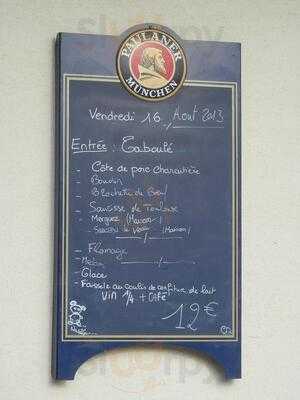 PAULANER
MÜNCHEN
Vendredi 16 Aout 2013
Entrée : Taboulé
- Côte de porc charcutière
- Boudin
- Brochette de Bœuf
- Saucisse de Toulouse
- Merguez (Maison)
- de Veau (Maison)
- Fromage
- Melon
- Glace
- Faisselle au coulis de confiture de lait
Vin 1/4 + Café
12€